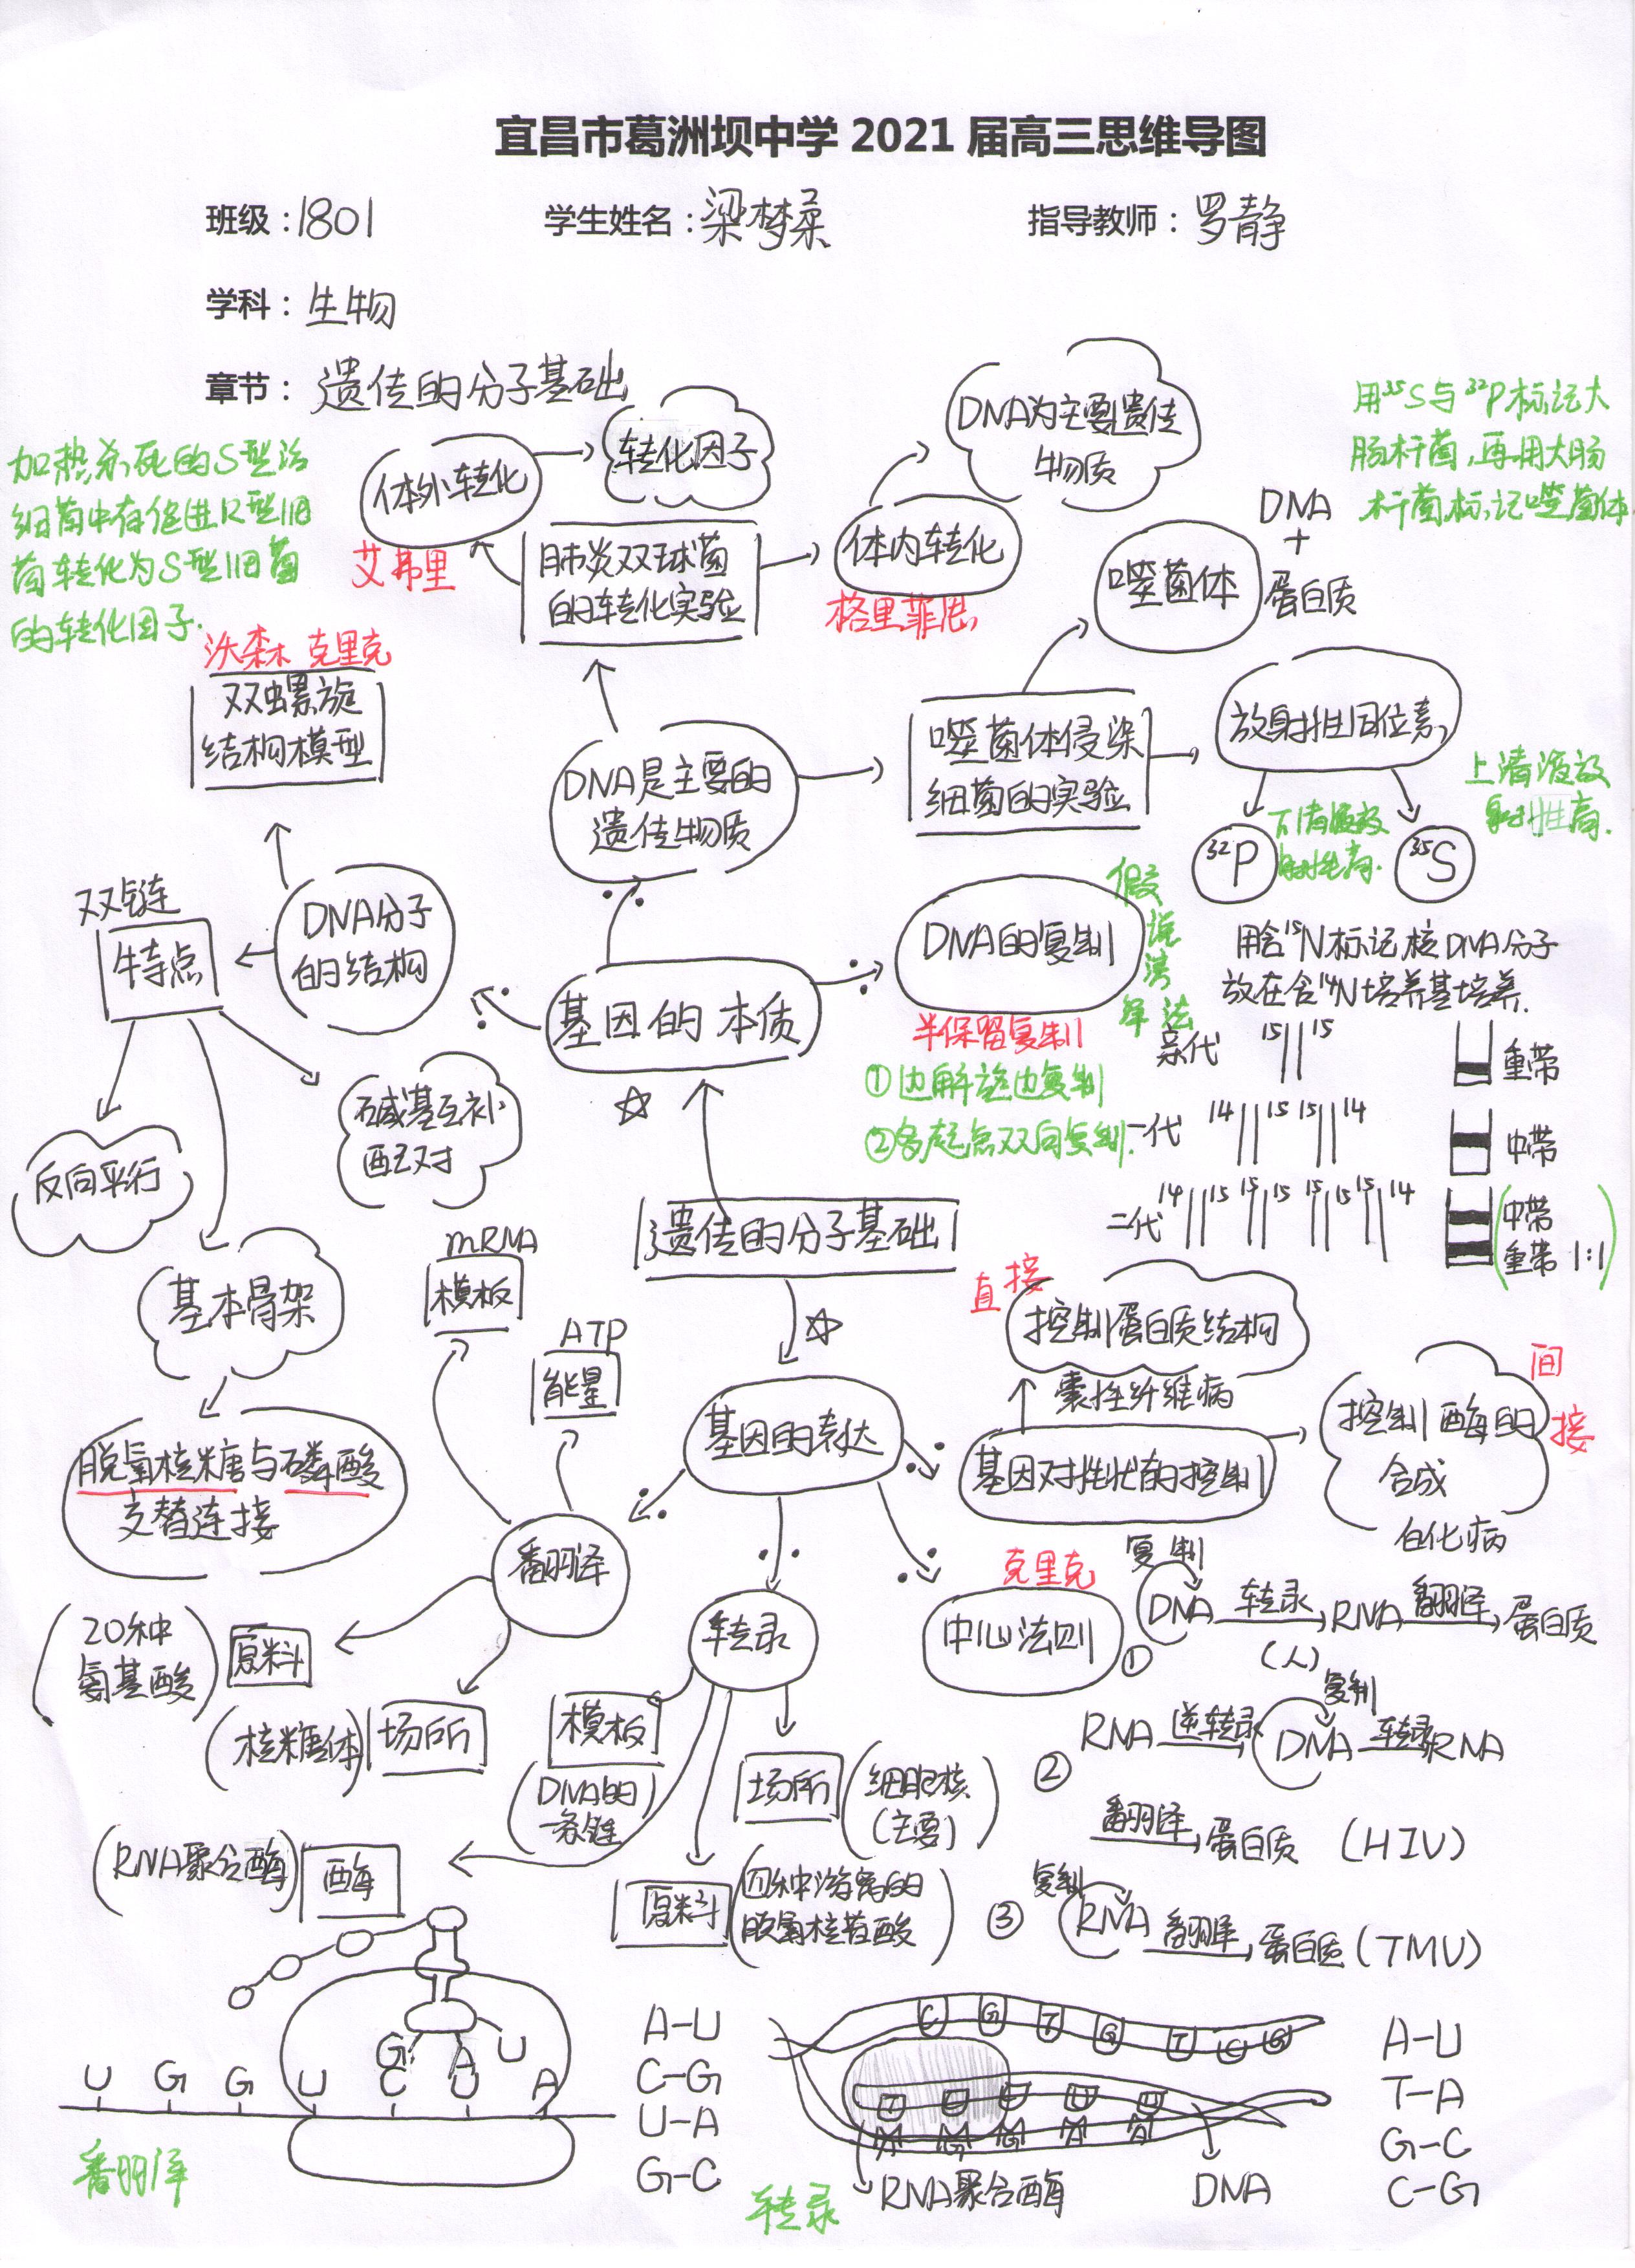 宜昌市葛洲坝中学 2021 届高三思维导图
班级：1801 学生姓名：梁梦柔 指导教师：罗静
学科：生物
章节：遗传的分子基础
加热杀死的S型活
细菌中存促进R型旧
菌转化为S型旧菌
的转化因子.
体外转化
艾弗里
转化因子
肺炎双球菌
的转化实验
体内转化
格里菲思
DNA为主要遗传
物质
用³⁵S与³²P标记大
肠杆菌,再用大肠
杆菌标记噬菌体
噬菌体
DNA
+
蛋白质
沃森 克里克
双螺旋
结构模型
DNA是主要的
遗传物质
噬菌体侵染
细菌的实验
放射性同位素
³²P
下清液放
射性高.
³⁵S
上清液放
射性高.
双链
特点
DNA分子
的结构
反向平行
碱基互补
配对
基本骨架
脱氧核糖与磷酸
交替连接
基因的本质
DNA的复制
假说演绎法
半保留复制
①边解旋边复制
②多起点双向复制.
用含¹⁵N标记核DNA分子
放在含¹⁴N培养基培养.
亲代 15 15 重带
一代 14 15 15 14 中带
二代 14 15 15 15 15 15 15 14 中带
重带 1:1
遗传的分子基础
mRNA
模板
ATP
能量
基因的表达
直接
控制蛋白质结构
囊性纤维病
基因对性状的控制
间接
控制酶的
合成
白化病
翻译
20种
氨基酸
原料
(核糖体)
场所
转录
模板
(DNA的
一条链)
场所
(细胞核
(主要))
(RNA聚合酶)
酶
原料
(四种游离的
脱氧核苷酸)
克里克
中心法则
① 复制 DNA 转录 RNA 翻译 蛋白质
(人)
② RNA 逆转录 复制 DNA 转录 RNA
翻译 蛋白质 (HIV)
③ 复制 RNA 翻译 蛋白质 (TMV)
G A U
U G G U C U A
翻译
A-U
C-G
U-A
G-C
C G T G T C G
转录
RNA聚合酶
DNA
A-U
T-A
G-C
C-G